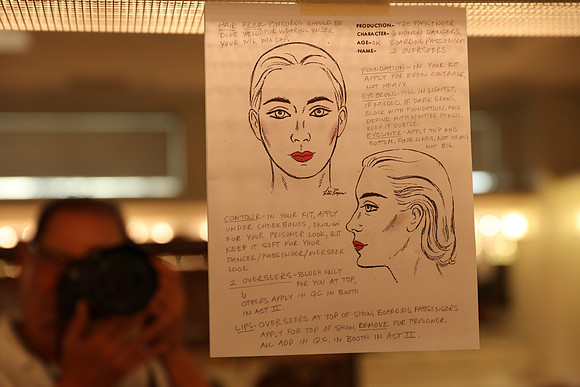 HAIR PREP-PINCURLS SHOULD BE
DONE WELL FOR WEARING UNDER
YOUR WIG WIGCAP.
PRODUCTION- THE PASSENGER
CHARACTER- 6 WOMEN DANCERS,
AGE- BOARDING PASSENGERS
NAME- 2 OVERSEERS
FOUNDATION- IN YOUR KIT
APPLY FOR EVEN COVERAGE,
NOT HEAVY.
EYEBROWS- FILL IN LIGHTER,
IF NEEDED, IF DARK BROWS,
BLOCK WITH FOUNDATION, AND
DEFINE WITH PENCIL.
KEEP IT SUBTLE.
EYELINER- APPLY TOP AND
BOTTOM, FINE LINES, NOT HEAVY
NOT BIG.
CONTOUR- IN YOUR KIT, APPLY
UNDER CHEEKBONES, ENOUGH
FOR YOUR PRISONER LOOK, BUT
KEEP IT SOFT FOR YOUR
DANCER/PASSENGER/OVERSEER
LOOK
2 OVERSEERS- BLUSH ONLY
FOR YOU AT TOP,
OTHERS APPLY IN Q.C. IN BOOTH
IN ACT II
LIPS- OVERSEERS AT TOP OF SHOW, BOARDING PASSENGERS
APPLY FOR TOP OF SHOW, REMOVE FOR PRISONER.
ALL ADD IN Q.C. IN BOOTH IN ACT II